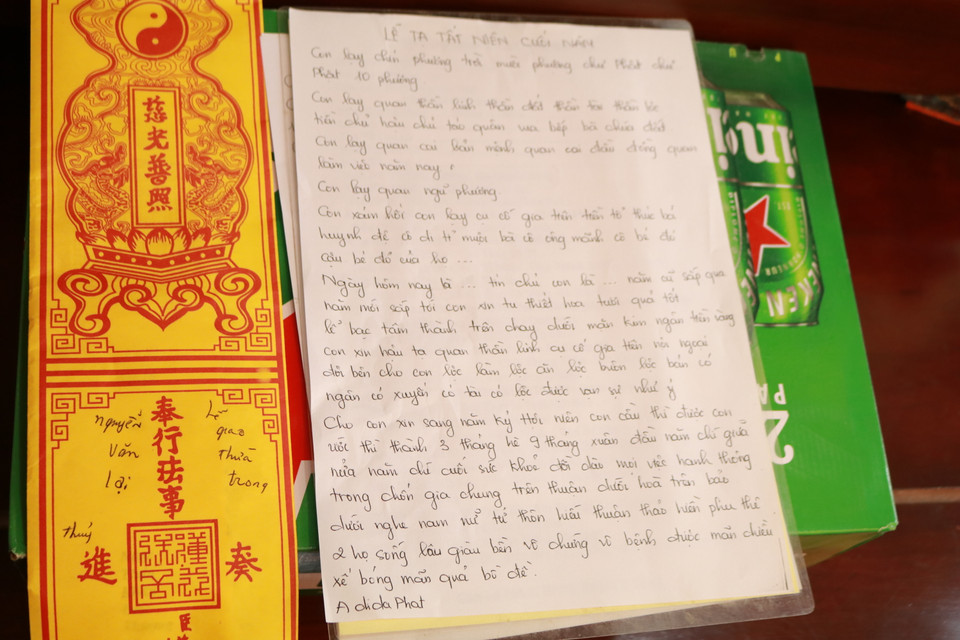 慈光普照
奉行法事
Nguyễn
Văn
Lại
Lễ
giao
thừa
trong
thuý
進 奏
臣
LỄ TẠ TẤT NIÊN CUỐI NĂM
Con lạy chín phương trời mười phương chư Phật chư
Phật 10 phương
Con lạy quan thần linh thần đất thần tài thần
tiền chủ hậu chủ táo quân vua bếp bà chúa đất
Con lạy quan cai bản mệnh quan cai đầu đồng quan
làm việc năm nay
Con lạy quan ngũ phương
Con xám hối con lạy cụ cố gia tiên tiền tổ thúc bá
huynh đệ cô di tỉ muội bà cô ông mãnh cô bé đỏ
cậu bé đỏ của họ ...
Ngày hôm nay là ... tín chủ con là ... năm cũ sắp qua
năm mới sắp tới con xin tu thiết hoa tươi quả tốt
lễ bạc tâm thành trên chay dưới mặn kim ngân tiền vàng
con xin hầu tạ quan thần linh cụ cố gia tiên nội ngoại
đôi bên cho con lộc làm lộc ăn lộc buôn lộc bán có
ngắn có xuyến có tài có lộc được vạn sự như ý
Cho con xin sang năm Kỷ Hợi niên con cầu thì được con
ước thì thành 3 tháng hè 9 tháng xuân đầu năm chí giữa
nửa năm chí cuối sức khoẻ dồi dào mọi việc hanh thông
trong chốn gia chung trên thuận dưới hoà trên bảo
dưới nghe nam nữ tử thôn hiếu thuận thảo hiền phu thê
2 họ sống lâu giàu bền vô chung vô bệnh được mãn chiều
xế bóng mãn quả bồ đề.
A di đà Phat
2
PA